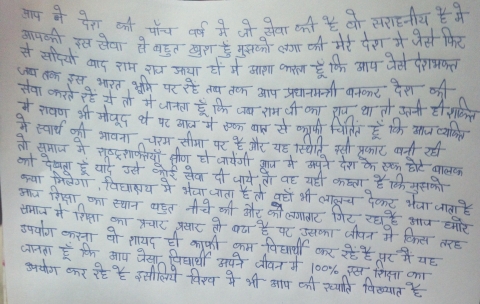 आप ने देश की पाँच वर्ष में जो सेवा की है वो सराहनीय है मैं
आपकी इस सेवा से बहुत खुश हूँ मुझको लगा की मेरे देश में जैसे फिर
से सदियों बाद राम राज आया हो मैं आशा करता हूँ कि आप जैसे देशभक्त
जब तक इस भारत भूमि पर रहे तब तक आप प्रधानमन्त्री बनकर देश की
सेवा करते रहे ये तो मैं जानता हूँ कि जब राम जी का राज था तो उतनी ही शक्ति
में रावण भी मौजूद थे पर आज मैं एक बात से काफी चिंतित हूँ कि आज व्यक्ति
में स्वार्थ की भावना चरम सीमा पर है और यह स्थिति इसी प्रकार बनी रही
तो समाज में क्षीण हो जायेगी आज मैं अपने देश के एक छोटे बालक
को देखता हूँ यदि उसे कोई सेवा दी जाये तो वह यही कहता है कि मुझको
क्या मिलेगा . विद्यालय में भेजा जाता है तो वहाँ भी लालच देकर भेजा जाता है
आज शिक्षा का स्थान बहुत नीचे की ओर को लगातार गिर रहा है आज हमारे
समाज में शिक्षा का प्रचार प्रसार तो बढा है पर उसका जीवन में किस तरह
उपयोग करना वो शायद ही काफी कम विद्यार्थी कर रहे है पर मैं यह
जानता हूँ कि आप जैसा विद्यार्थी अपने जीवन में 100% इस शिक्षा का
उपयोग कर रहे है इसीलिये विश्व में भी आप की ख्याति विख्यात है